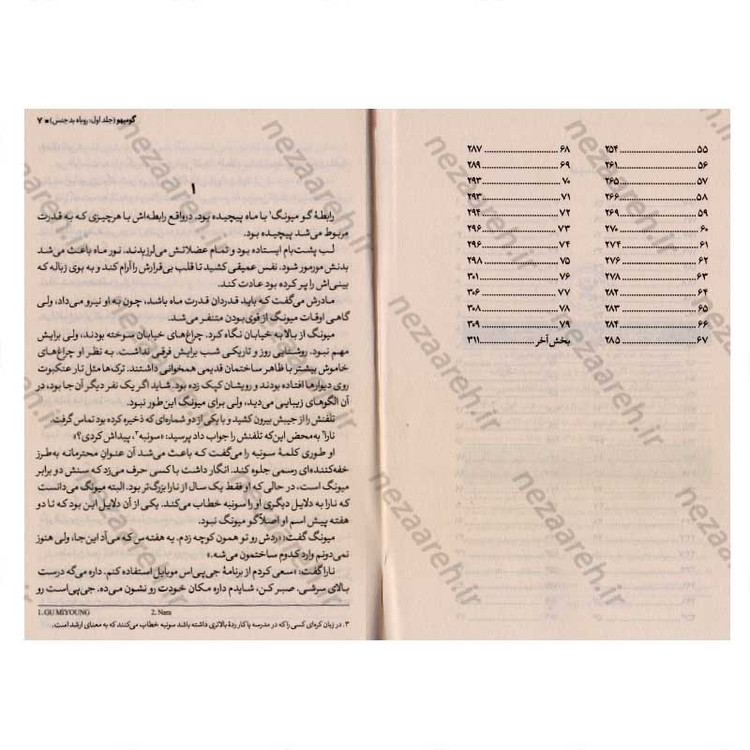 ۵۵ ........ ۲۵۴
۵۶ ........ ۲۶۱
۵۷ ........ ۲۶۵
۵۸ ........ ۲۶۶
۵۹ ........ ۲۶۹
۶۰ ........ ۲۷۰
۶۱ ........ ۲۷۴
۶۲ ........ ۲۷۶
۶۳ ........ ۲۷۸
۶۴ ........ ۲۸۲
۶۵ ........ ۲۸۳
۶۶ ........ ۲۸۴
۶۷ ........ ۲۸۵
۶۸ ........ ۲۸۷
۶۹ ........ ۲۸۹
۷۰ ........ ۲۹۳
۷۱ ........ ۲۹۳
۷۲ ........ ۲۹۴
۷۳ ........ ۲۹۶
۷۴ ........ ۲۹۶
۷۵ ........ ۲۹۸
۷۶ ........ ۳۰۱
۷۷ ........ ۳۰۶
۷۸ ........ ۳۰۸
۷۹ ........ ۳۰۹
بخش آخر ........ ۳۱۱
گومیهو (جلد اول: روباه بدجنس) ■ ۷
۱
رابطهٔ گو میونگ۱ با ماه پیچیده بود. درواقع رابطه‌اش با هرچیزی که به قدرت
مربوط می‌شد پیچیده بود.
لب پشت‌بام ایستاده بود و تمام عضلاتش می‌لرزیدند. نور ماه باعث می‌شد
بدنش مورمور شود. نفس عمیقی کشید تا قلب بی‌قرارش را آرام کند و به بوی زباله که
بینی‌اش را پر کرده بود عادت کند.
مادرش می‌گفت که باید قدردان قدرت ماه باشد، چون به او نیرو می‌داد، ولی
گاهی اوقات میونگ از قوی بودن متنفر می‌شد.
میونگ از بالا به خیابان نگاه کرد. چراغ‌های خیابان سوخته بودند، ولی برایش
مهم نبود. روشنایی روز و تاریکی شب برایش فرقی نداشت. به نظر او چراغ‌های
خاموش بیشتر با ظاهر ساختمان قدیمی همخوانی داشتند. ترک‌ها مثل تار عنکبوت
روی دیوارها افتاده بودند و رویشان کپک زده بود. شاید اگر یک نفر دیگر آن جا بود، در
آن الگوهای زیبایی می‌دید، ولی برای میونگ این‌طور نبود.
تلفنش را از جیبش بیرون کشید و با یکی از دو شماره‌ای که ذخیره کرده بود تماس گرفت.
نارا۲ به‌محض این‌که تلفنش را جواب داد پرسید: «سونبه۳، پیداش کردی؟»
او طوری کلمهٔ سونبه را می‌گفت که باعث می‌شد آن عنوان محترمانه به‌طرز
خفه‌کننده‌ای رسمی جلوه کند. انگار داشت با کسی حرف می‌زد که سنش دو برابر
میونگ است، در حالی‌که او فقط یک سال از نارا بزرگ‌تر بود. البته میونگ می‌دانست
که نارا به دلایل دیگری او را سونبه خطاب می‌کند. یکی از آن دلایل این بود که تا دو
هفته پیش اسم او اصلاً گو میونگ نبود.
میونگ گفت: «ردش رو تو همون کوچه زدم. یه هفته‌س که می‌آد این‌جا، ولی هنوز
نمی‌دونم وارد کدوم ساختمون می‌شه.»
نارا گفت: «سعی کردم از برنامهٔ جی‌پی‌اس موبایل استفاده کنم. داره می‌گه درست
بالای سرشی. صبر کن، شایدم داره مکان خودت رو نشون می‌ده. جی‌پی‌است رو
1. GU MIYOUNG 2. Nara
۳. در زبان کره‌ای کسی را که در مدرسه یا کار ردهٔ بالاتری داشته باشد سونبه خطاب می‌کنند که به معنای ارشد است.
nezaareh.ir